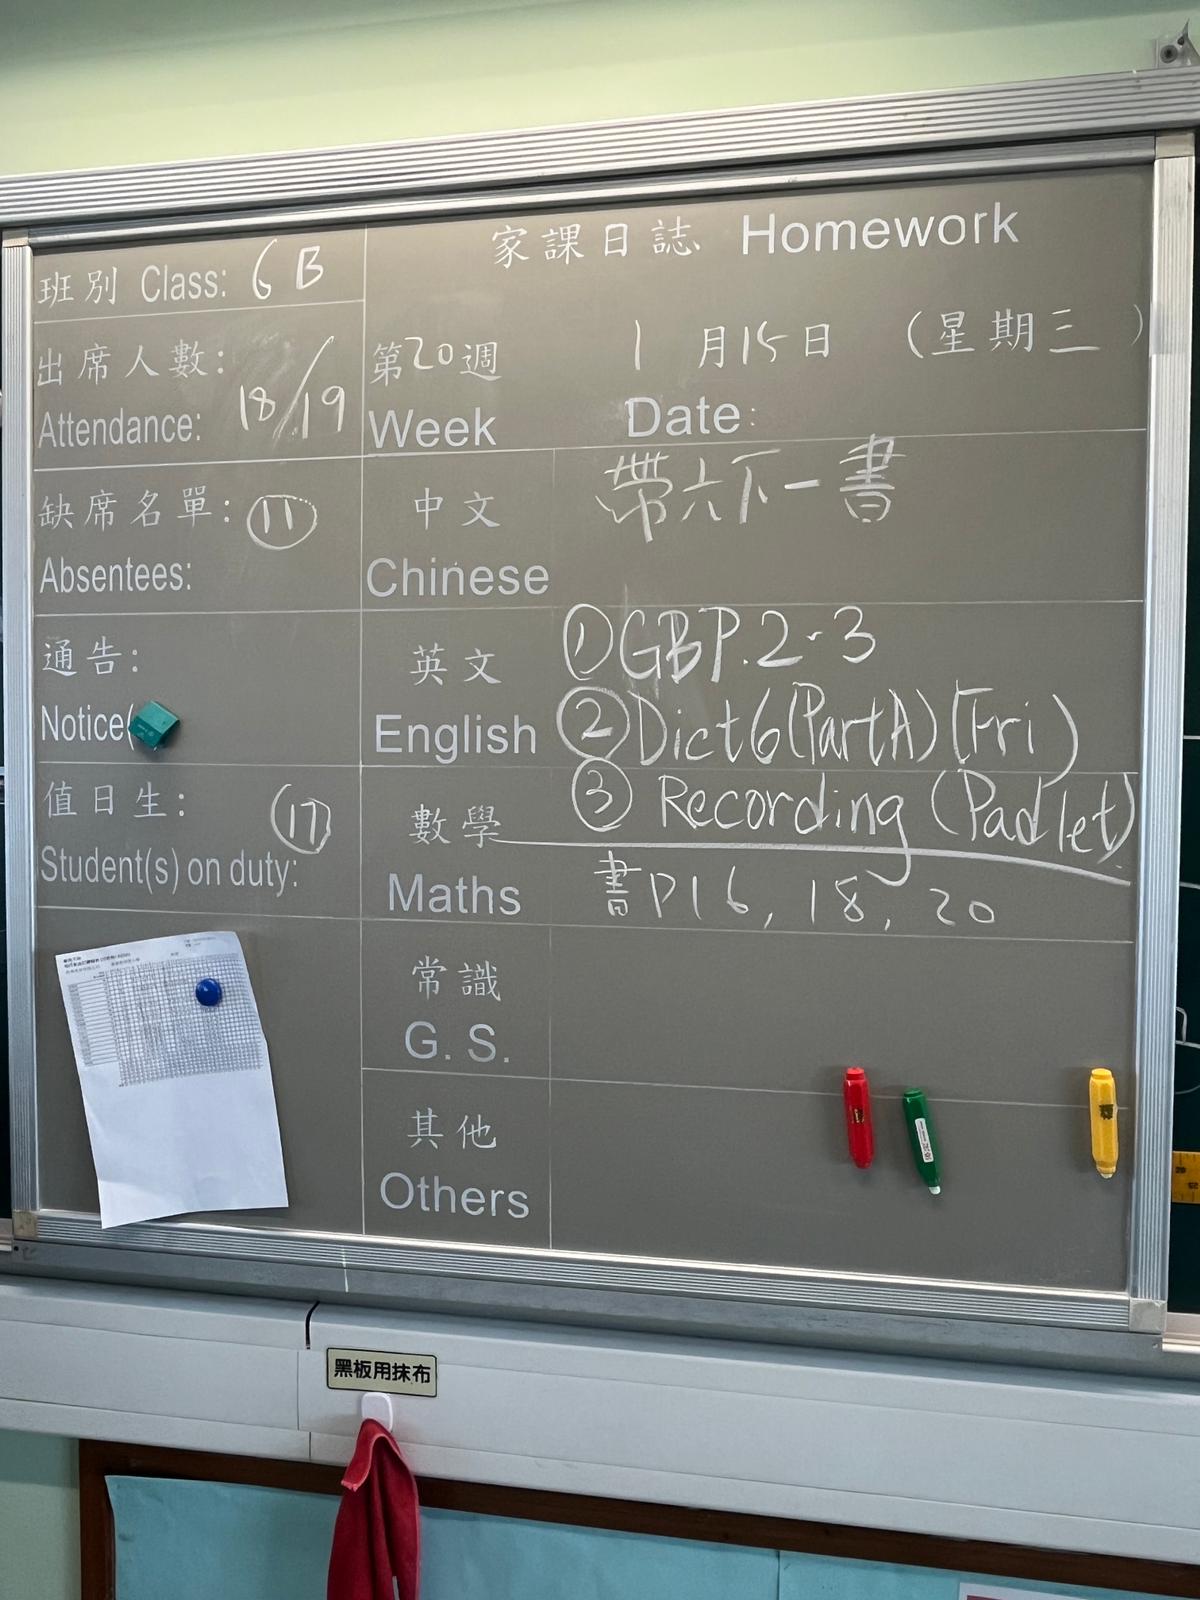 家課日誌 Homework
班別 Class: 6B
出席人數:
Attendance: 18/19
第20週 1月15日 (星期三)
Week Date:
缺席名單: 11
Absentees:
中文 帶六下一書
Chinese
通告:
Notice(
英文 ① GB P.2-3
English ② Dict 6 (Part A) (Fri)
③ Recording (Padlet)
值日生: 17
Student(s) on duty:
數學
Maths 書P16, 18, 20
常識
G. S.
其他
Others
黑板用抹布